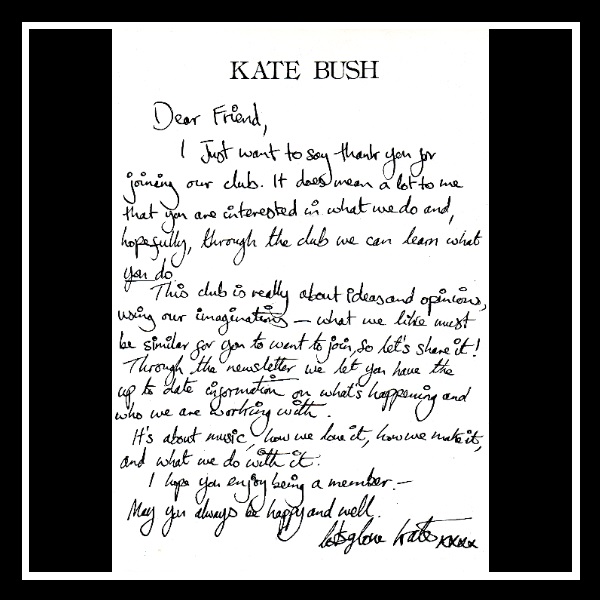 KATE BUSH
Dear Friend,
I Just want to say thank you for
joining our club. It does mean a lot to me
that you are interested in what we do and,
hopefully, through the club we can learn what
you do
This club is really about ideas and opinions,
using our imaginations – what we like must
be similar for you to want to join, so let's share it!
Through the newsletter we let you have the
up to date information on what's happening and
who we are working with.
It's about music, how we love it, how we make it,
and what we do with it.
I hope you enjoy being a member.–
May you always be happy and well.
lots of love Kate xxxx